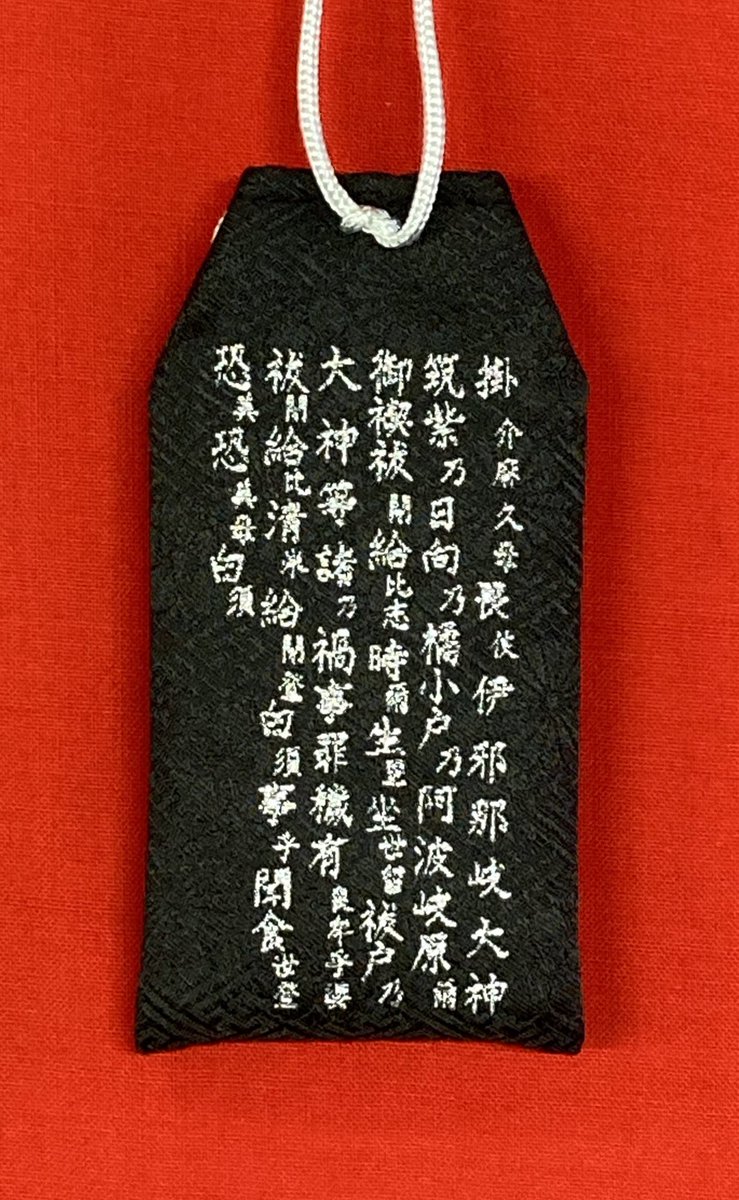 掛介麻久母畏伎伊邪那岐大神
筑紫乃日向乃橘小戸乃阿波岐原爾
御禊祓閇給比志時爾生里坐世留祓戸乃
大神等諸乃禍事罪穢有良牟乎婆
祓閇給比清米給閇登白須事乎聞食世登
恐美恐美母白須